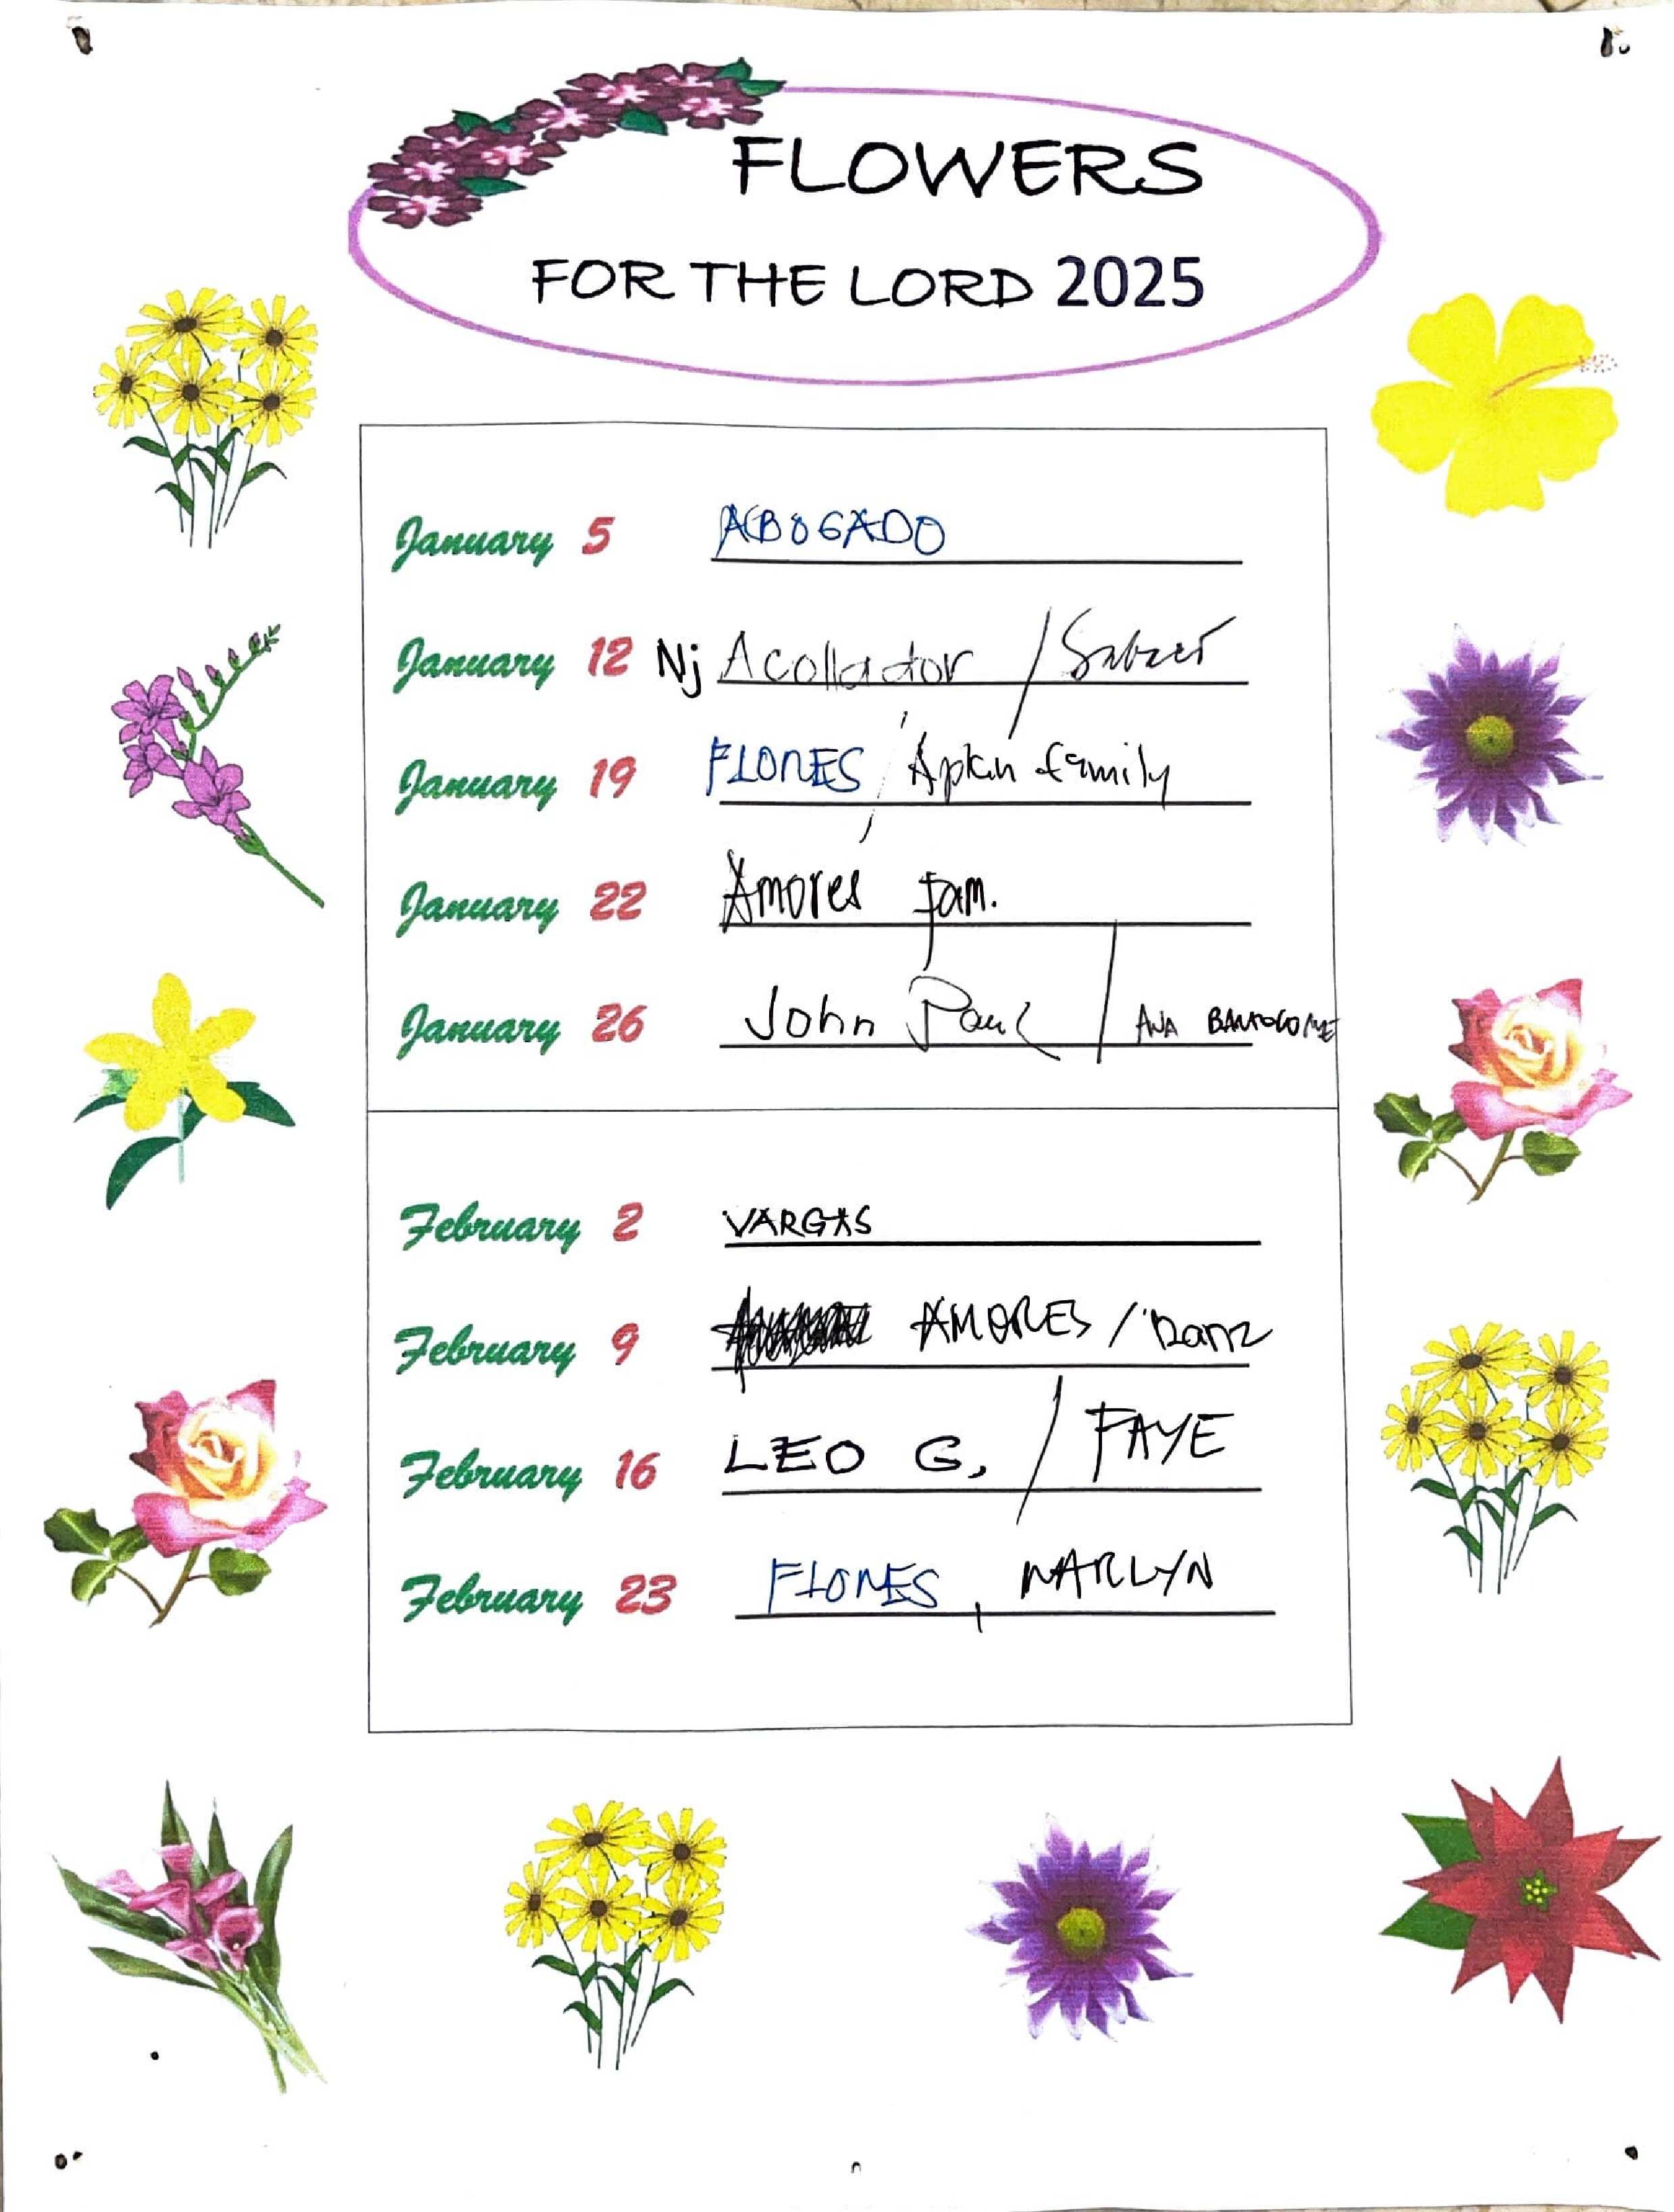 FLOWERS
FOR THE LORD 2025
January 5 ABOGADO
January 12 Nj Acollador /
January 19 FLORES / Apkin family
January 22 Amores Fam.
January 26 John Paul / ANA BARTOLOME
February 2 VARGAS
February 9 AMORES /
February 16 LEO G. / FAYE
February 23 FLORES, MARLYN